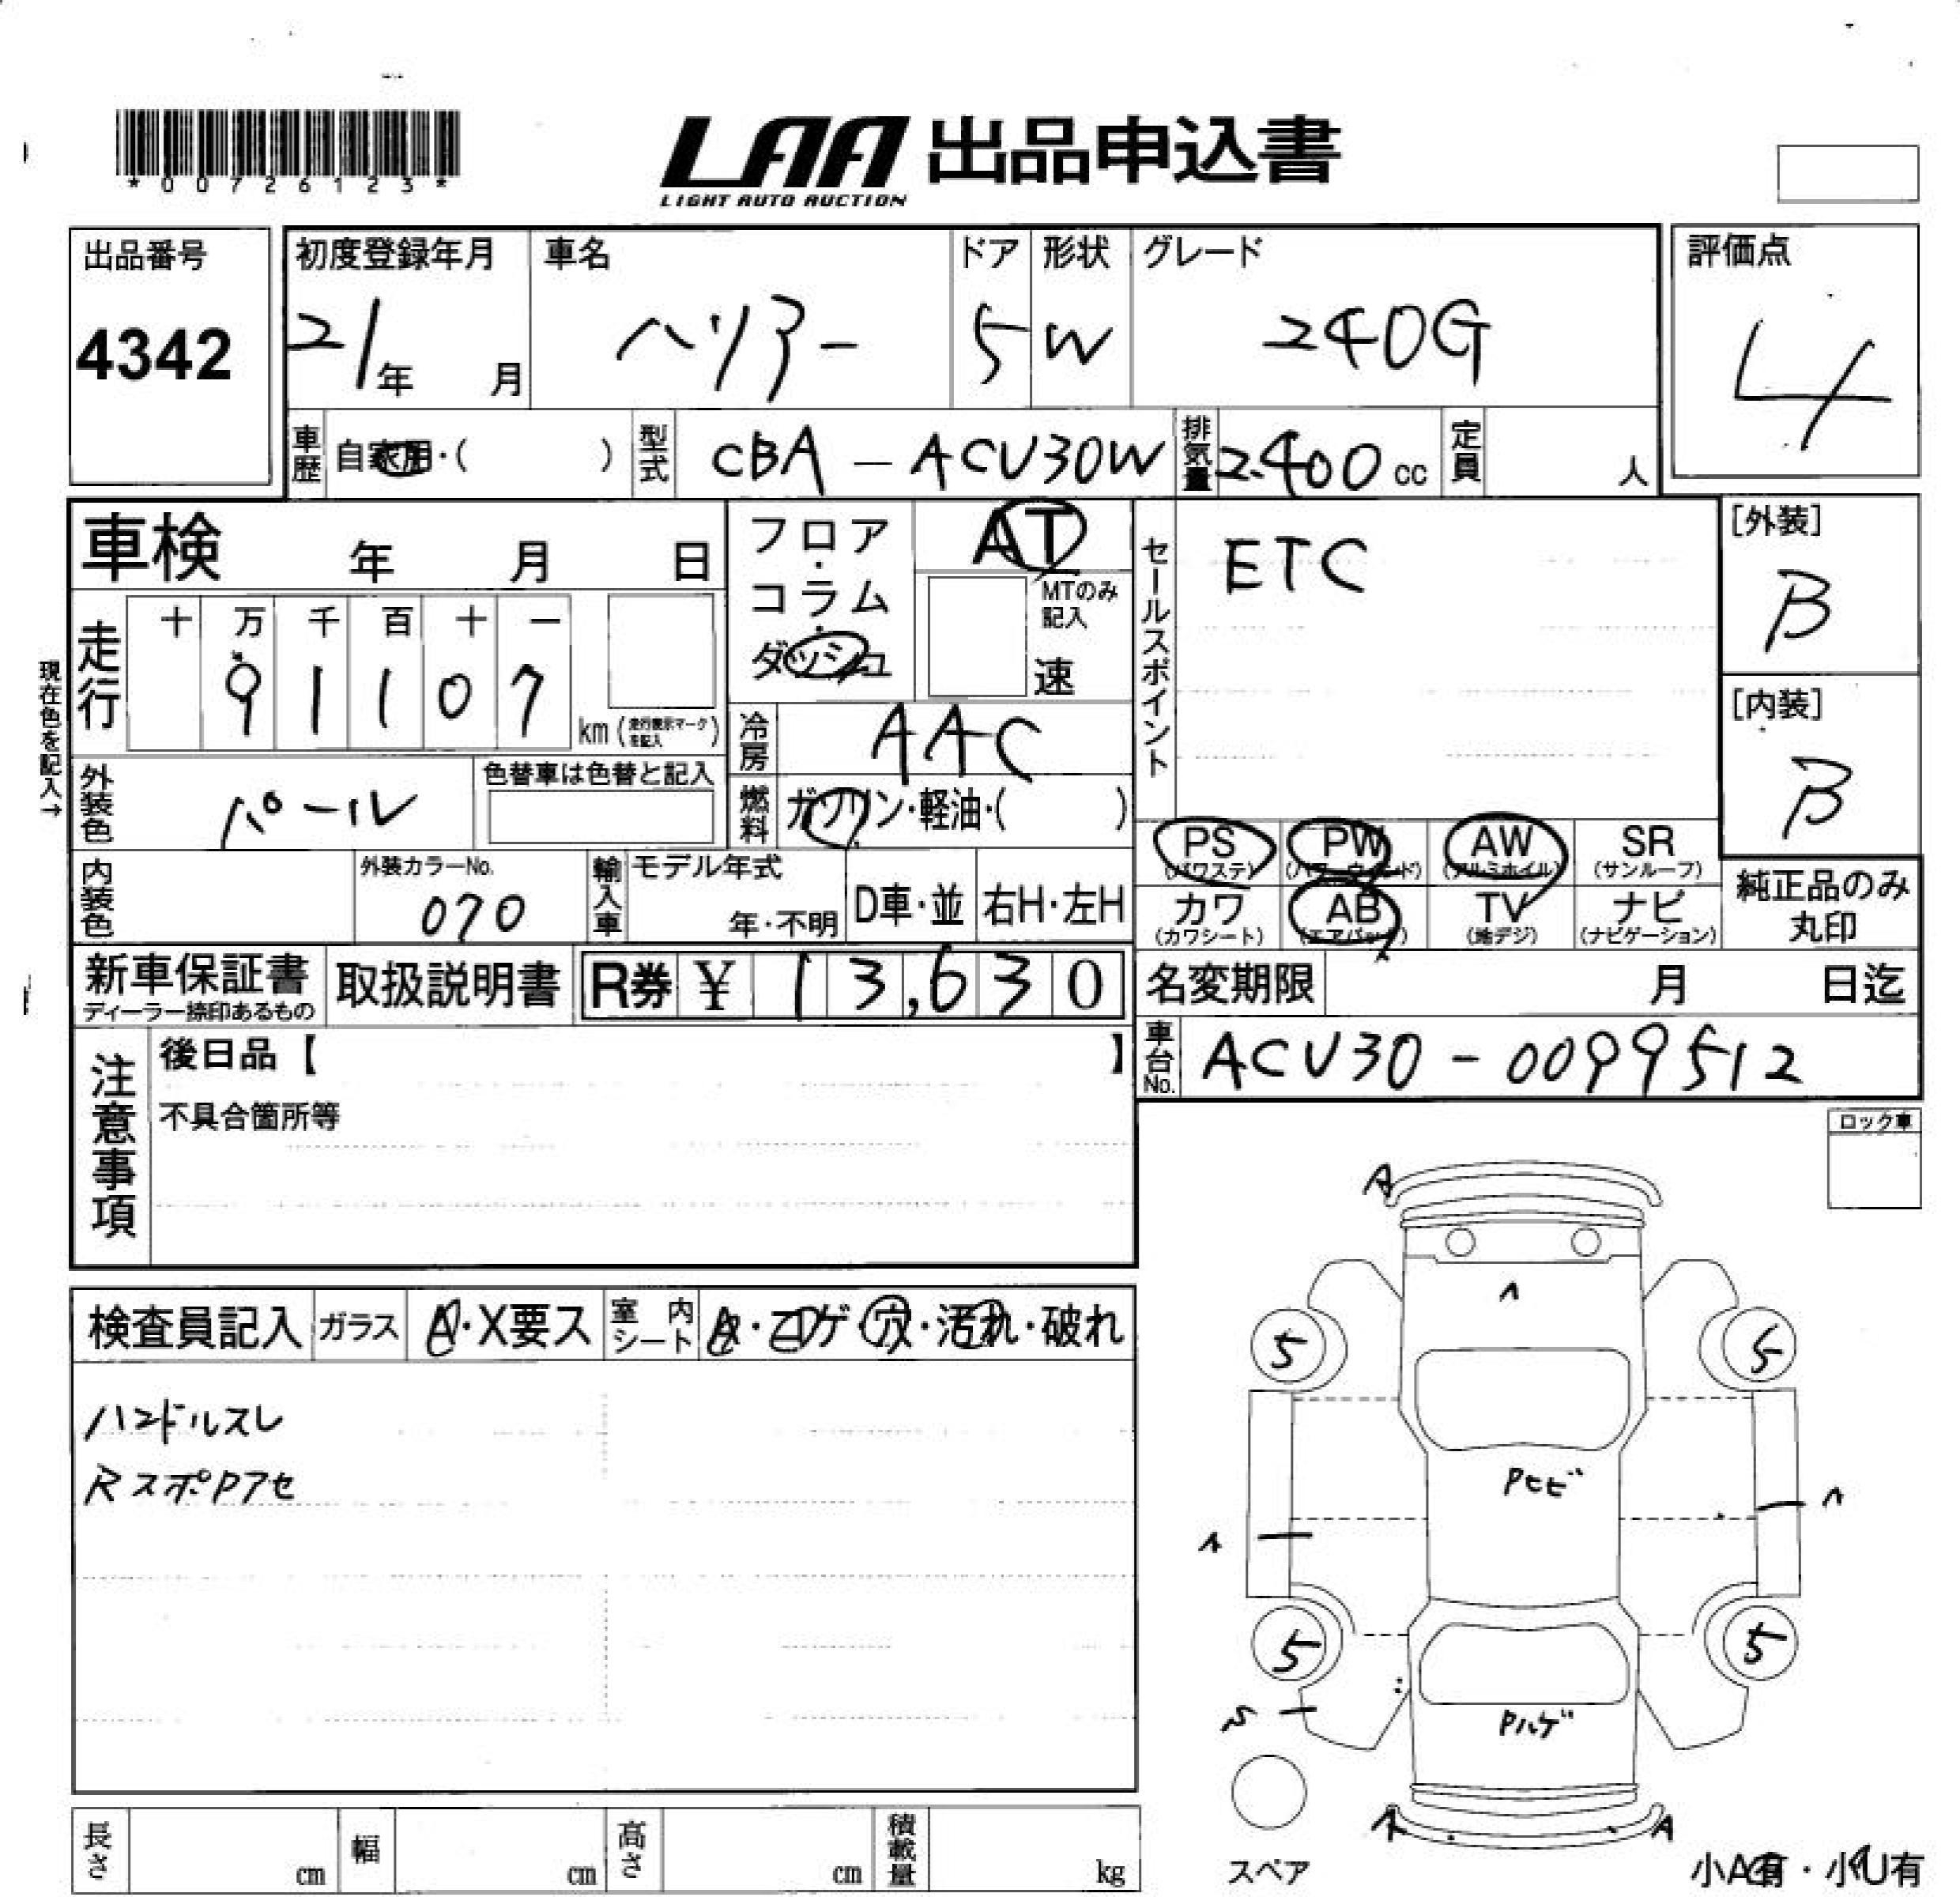 *00726123*
LAA 出品申込書
LIGHT AUTO AUCTION
出品番号
4342
初度登録年月
21年 月
車名
ハリアー
ドア
5
形状
W
グレード
240G
評価点
4
車歴 自家用・( )
型式 CBA-ACU30W
排気量 2400 cc
定員 人
車検 年 月 日
フロア・コラム・ダッシュ
AT
MTのみ記入
速
セールスポイント
ETC
[外装]
B
[内装]
B
現在色を記入→
走行
十 万 千 百 十 一
9 1 1 0 7
km (走行表示マークを記入)
冷房 AAC
外装色 パール
色替車は色替と記入
燃料 ガソリン・軽油・( )
PS (パワステ)
PW (パワーウィンド)
AW (アルミホイル)
SR (サンルーフ)
カワ (カワシート)
AB (エアバック)
TV (地デジ)
ナビ (ナビゲーション)
純正品のみ丸印
内装色
外装カラーNo.
070
輸入車
モデル年式
年・不明
D車・並
右H・左H
新車保証書
ディーラー捺印あるもの
取扱説明書
R券 ¥ 13,630
名変期限 月 日迄
車台No. ACU30-0099512
注意事項
後日品【 】
不具合箇所等
ロック車
検査員記入
ガラス A・X要ス
室内シート
・コゲ・穴・汚れ・破れ
ハンドルスレ
RスポPアセ
A
5 5
Pヒビ
5 5
Pハゲ
A
スペア
小A有・小U有
長さ cm
幅 cm
高さ cm
積載量 kg